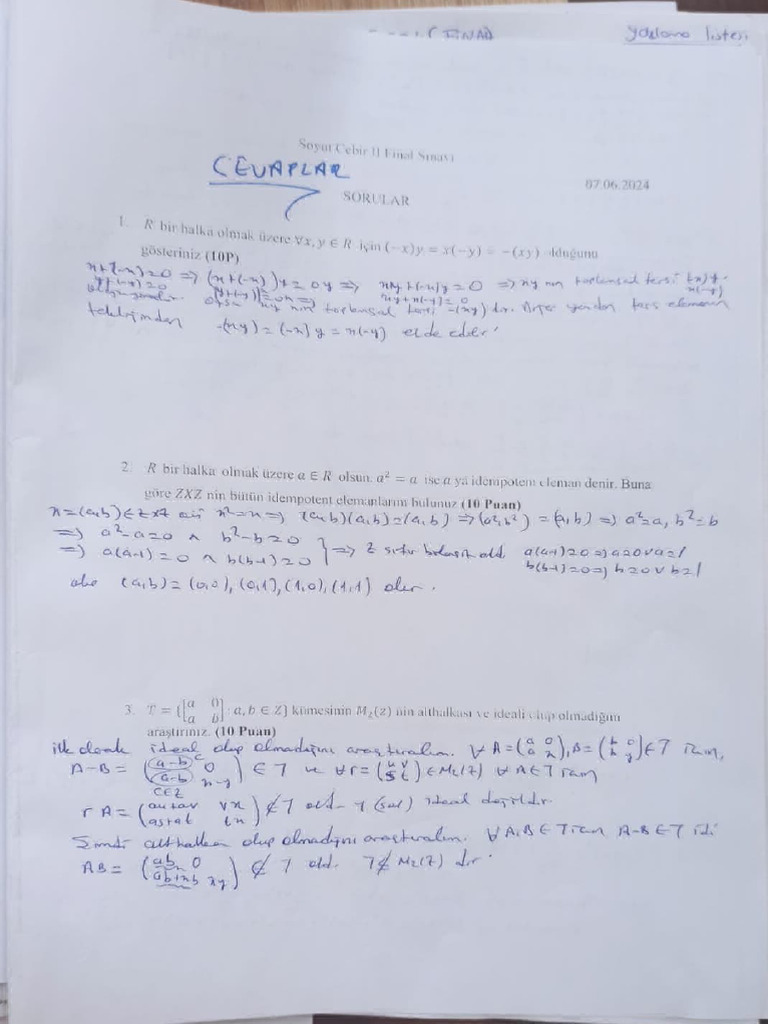 (FİNAL)
yoklama listesi
Soyut Cebir II Final Sınavı
CEVAPLAR
07.06.2024
SORULAR
1. R bir halka olmak üzere ∀x, y ∈ R için (−x)y = x(−y) = −(xy) olduğunu
gösteriniz (10P)
x+(-x)=0 ⇒ (x+(-x))y=0y ⇒ xy+(-x)y=0 ⇒ xy nin toplamsal tersi (-x)y
y+(-y)=0 xy+x(-y)=0 x(-y)
xy nin toplamsal tersi -(xy) dir. Diğer yandan ters elemanın
tekliğinden -(xy) = (-x)y = x(-y) elde edilir
2. R bir halka olmak üzere a ∈ R olsun. a² = a ise a ya idempotem eleman denir. Buna
göre ZXZ nin bütün idempotent elemanlarını bulunuz (10 Puan)
x=(a,b)∈ZXZ x²=x ⇒ (a,b)(a,b)=(a,b) ⇒ (a²,b²) = (a,b) ⇒ a²=a, b²=b
⇒ a²-a=0 ∧ b²-b=0
⇒ a(a-1)=0 ∧ b(b-1)=0 } ⇒ Z old. a(a-1)=0 ⇒ a=0 ∨ a=1
b(b-1)=0 ⇒ b=0 ∨ b=1
(a,b) = (0,0), (0,1), (1,0), (1,1) olur.
3. T = {[a 0
a b] : a, b ∈ Z} kümesinin M₂(Z) nin althalkası ve ideali olup olmadığını
araştırınız. (10 Puan)
ilk olarak ideal olup olmadığını araştıralım. ∀ A = (a 0
a x), B = (b 0
b y) ∈ T için,
A-B = (a-b 0
a-b x-y) ∈ T ve ∀ r = (u v
s t) ∈ M₂(Z) ∀ A∈T için
c∈Z
rA = (au+av vx
as+at tx) ∉ T old. T (sol) ideal değildir.
Şimdi althalka olup olmadığını araştıralım. ∀ A,B ∈ T için A-B ∈ T idi
AB = (ab 0
ab+xb xy) ∉ T old. T ≮ M₂(Z) dir.